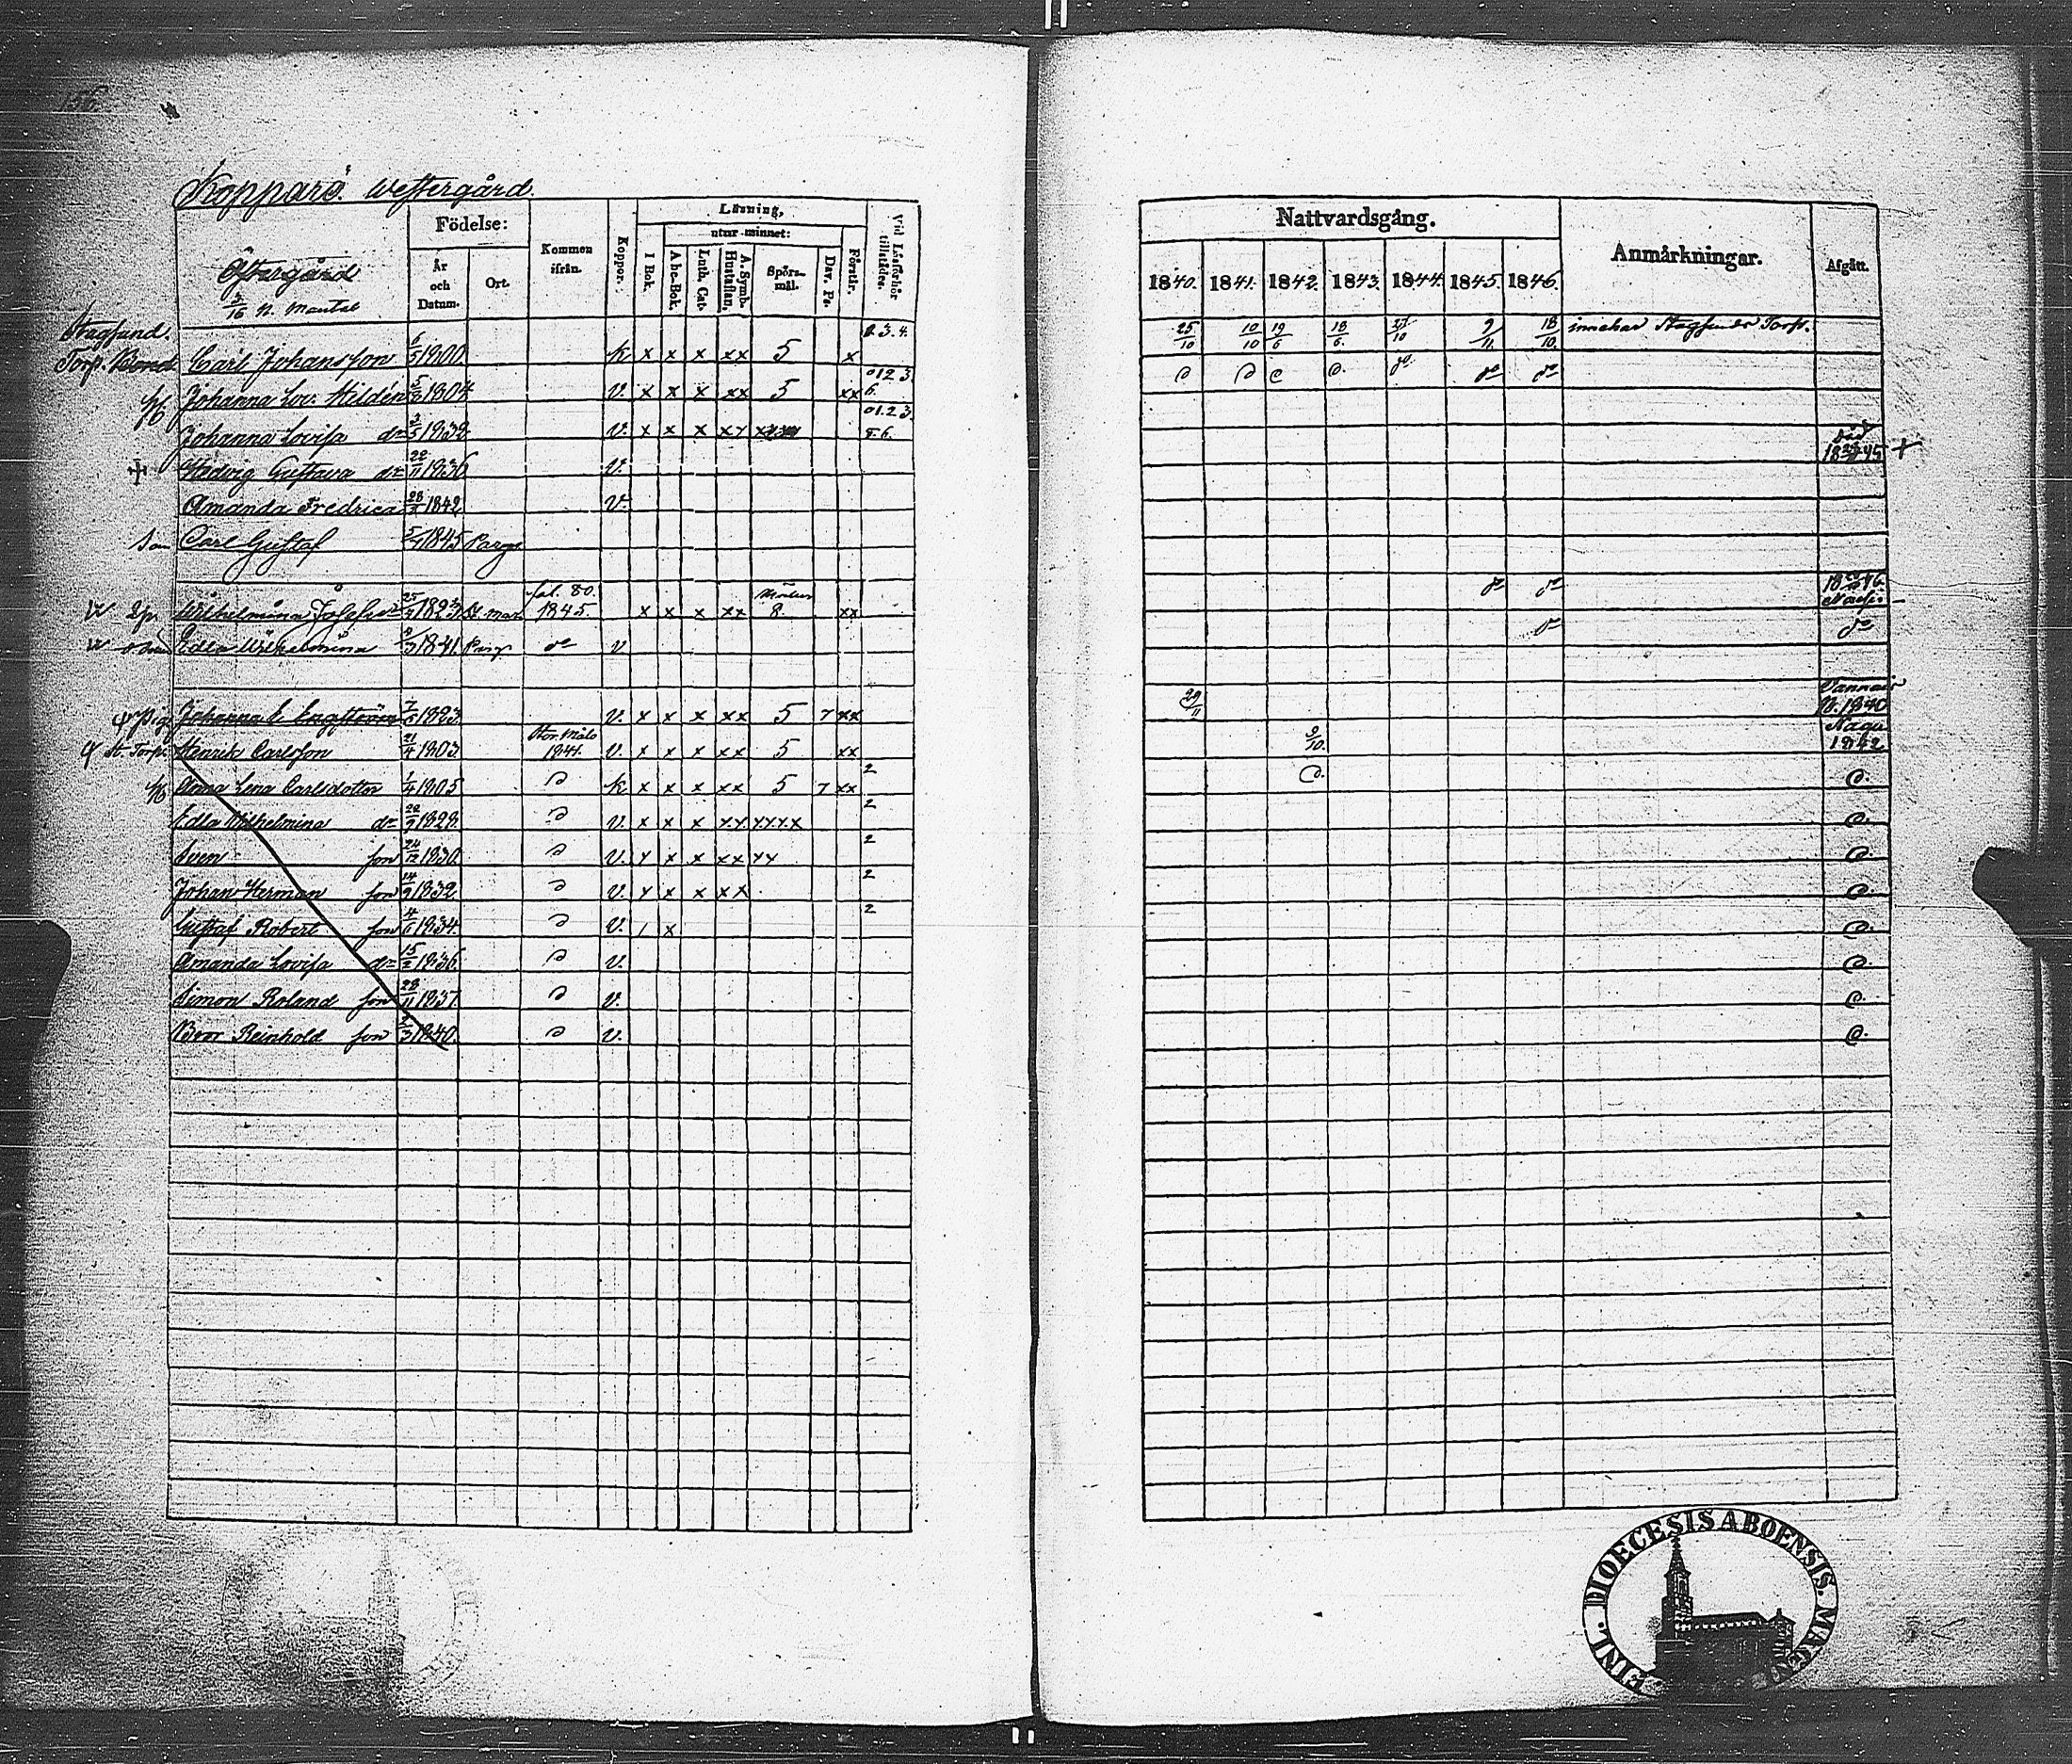 156
Kopparö. Westergård.
Östergård
3/16 n. Mantal
Födelse:
År och Datum.
Ort.
Kommen ifrån.
Koppor.
Läsning,
utur minnet:
I Bok.
Abc-Bok.
Luth. Cat.
A. Symb. Hustaflan,
Spörsmål.
Dav. Ps.
Förstår.
Vid Läsförhör tillstädes.
Nattvardsgång.
1840. 1841. 1842. 1843. 1844. 1845. 1846.
Anmärkningar.
Afgått.
Stagsund.
Torp. Bonde Carl Johansson 6/5 1800 k x x x xx 5 x 0.3.4. 25/10 10/10 19/6 18/6. 9/11 18/10. innehar Stagsunds Torp.
h Johanna Lov. Hildén 5/3 1804 V. x x x xx 5 xx 0123. 6.
Johanna Lovisa dr 1832 V. x x x xx 01.2 3. 5.6.
Hedvig Gustava dr 22/11 1836 V. död 1845 +
Amanda Fredrica 28/ 1842 V.
son Carl Gustaf 5/7 1845 Pargs
Wilhelmina Josefsdr 25/4 1823 fol. 80. 1845. x x x xx 8. xx dr dr 1846
Edla Wilhelmina 1841. Parg dr V dr dr
pig. Johanna E. Engström 7/6 1823. V. x x x xx 5 7 xx 29/11 1840
St. Torp. Henrik Carlsson 21/4 1803. 1841. V. x x x xx 5 xx 9/10. Nagu 1842
h Anna Lena Carlsdotter 1/4 1805 D k x x x xx 5 7 xx 2 D. D.
Edla Wilhelmina dr 20/9 1828. D V. x x x xx xxxx 2 D.
Sven son 24/12 1830. D V. x x x xx xx 2 D.
Johan Herman son 14/9 1832. D V. x x x xx 2 D.
Gustaf Robert son 4/6 1834. D V. / x 2 D.
Amanda Lovisa dr 15/2 1836. D V. D.
Simon Roland son 28/11 1837. D V. D.
Bror Reinhold son 2/3 1840. D V. D.
FINL. DIOECESIS ABOENSIS. MAGN